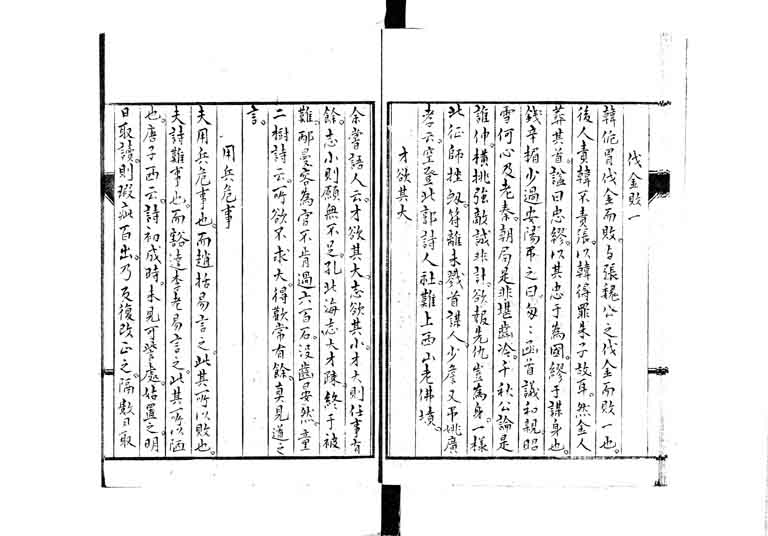 伐金敗一
韓侂冑伐金而敗。与張魏公之伐金而敗一也。
後人責韓不責張。以韓得罪朱子故耳。然金人
葬其首。諡曰忠繆。以其忠于為國。繆于謀身也。
錢辛楣少過安陽弔之曰。匆〻函首議和親昭
雪何心及老秦。朝局是非堪齒冷。千秋公論是
誰伸。橫挑強敵誠非計。欲報先仇豈為身。一樣
北征師挫衂。符離未戮首謀人少詹又弔姚廣
孝云。空登北郭詩人社。難上西山老佛墳。
才欲其大
余嘗語人云。才欲其大。志欲其小。才大則任事有
餘。志小則願無不足。孔北海志大才疎。終于被
難。邴曼容為官不肯過六百石。沒齒晏然。童
二樹詩云。所欲不求大。得歡常有餘。真見道之
言。
用兵危事
夫用兵危事也。而趙括易言之。此其所以敗也。
夫詩難事也。而豁達李老易言之。此其所以陋
也。唐子西云。詩初成時。未見可訾處。姑置之。明
日取讀。則瑕疵百出。乃反復改正之。隔數日取